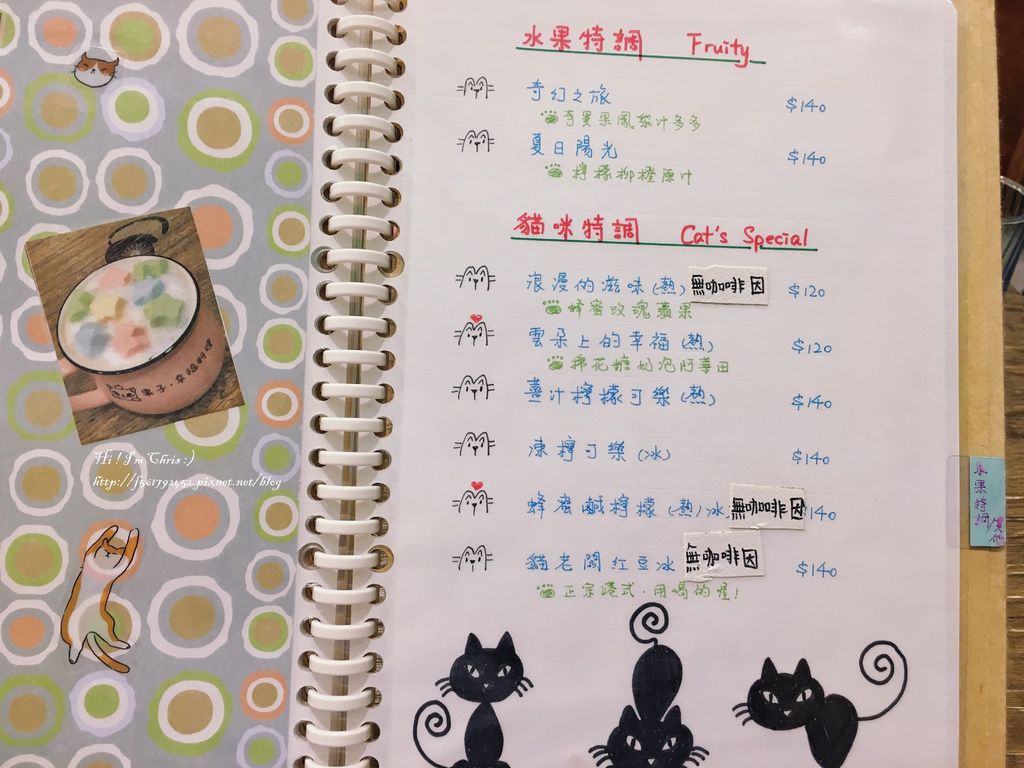 水果特調 Fruity
奇幻之旅 $140
奇異果鳳梨汁多多
夏日陽光 $140
檸檬柳橙原汁
貓咪特調 Cat's Special
浪漫的滋味(熱) 無咖啡因 $120
蜂蜜玫瑰蘋果
雲朵上的幸福(熱) $120
棉花糖奶泡阿華田
薑汁檸檬可樂(熱) $140
凍檸可樂(冰) $140
蜂蜜鹹檸檬(熱)冰 無咖啡因 $140
貓老闆紅豆冰 無咖啡因 $140
正宗港式·用喝的喔!
果子·幸福料理
Hi ! I'm Chris :)
http://f561792452.pixnet.net/blog
水果特調/其他